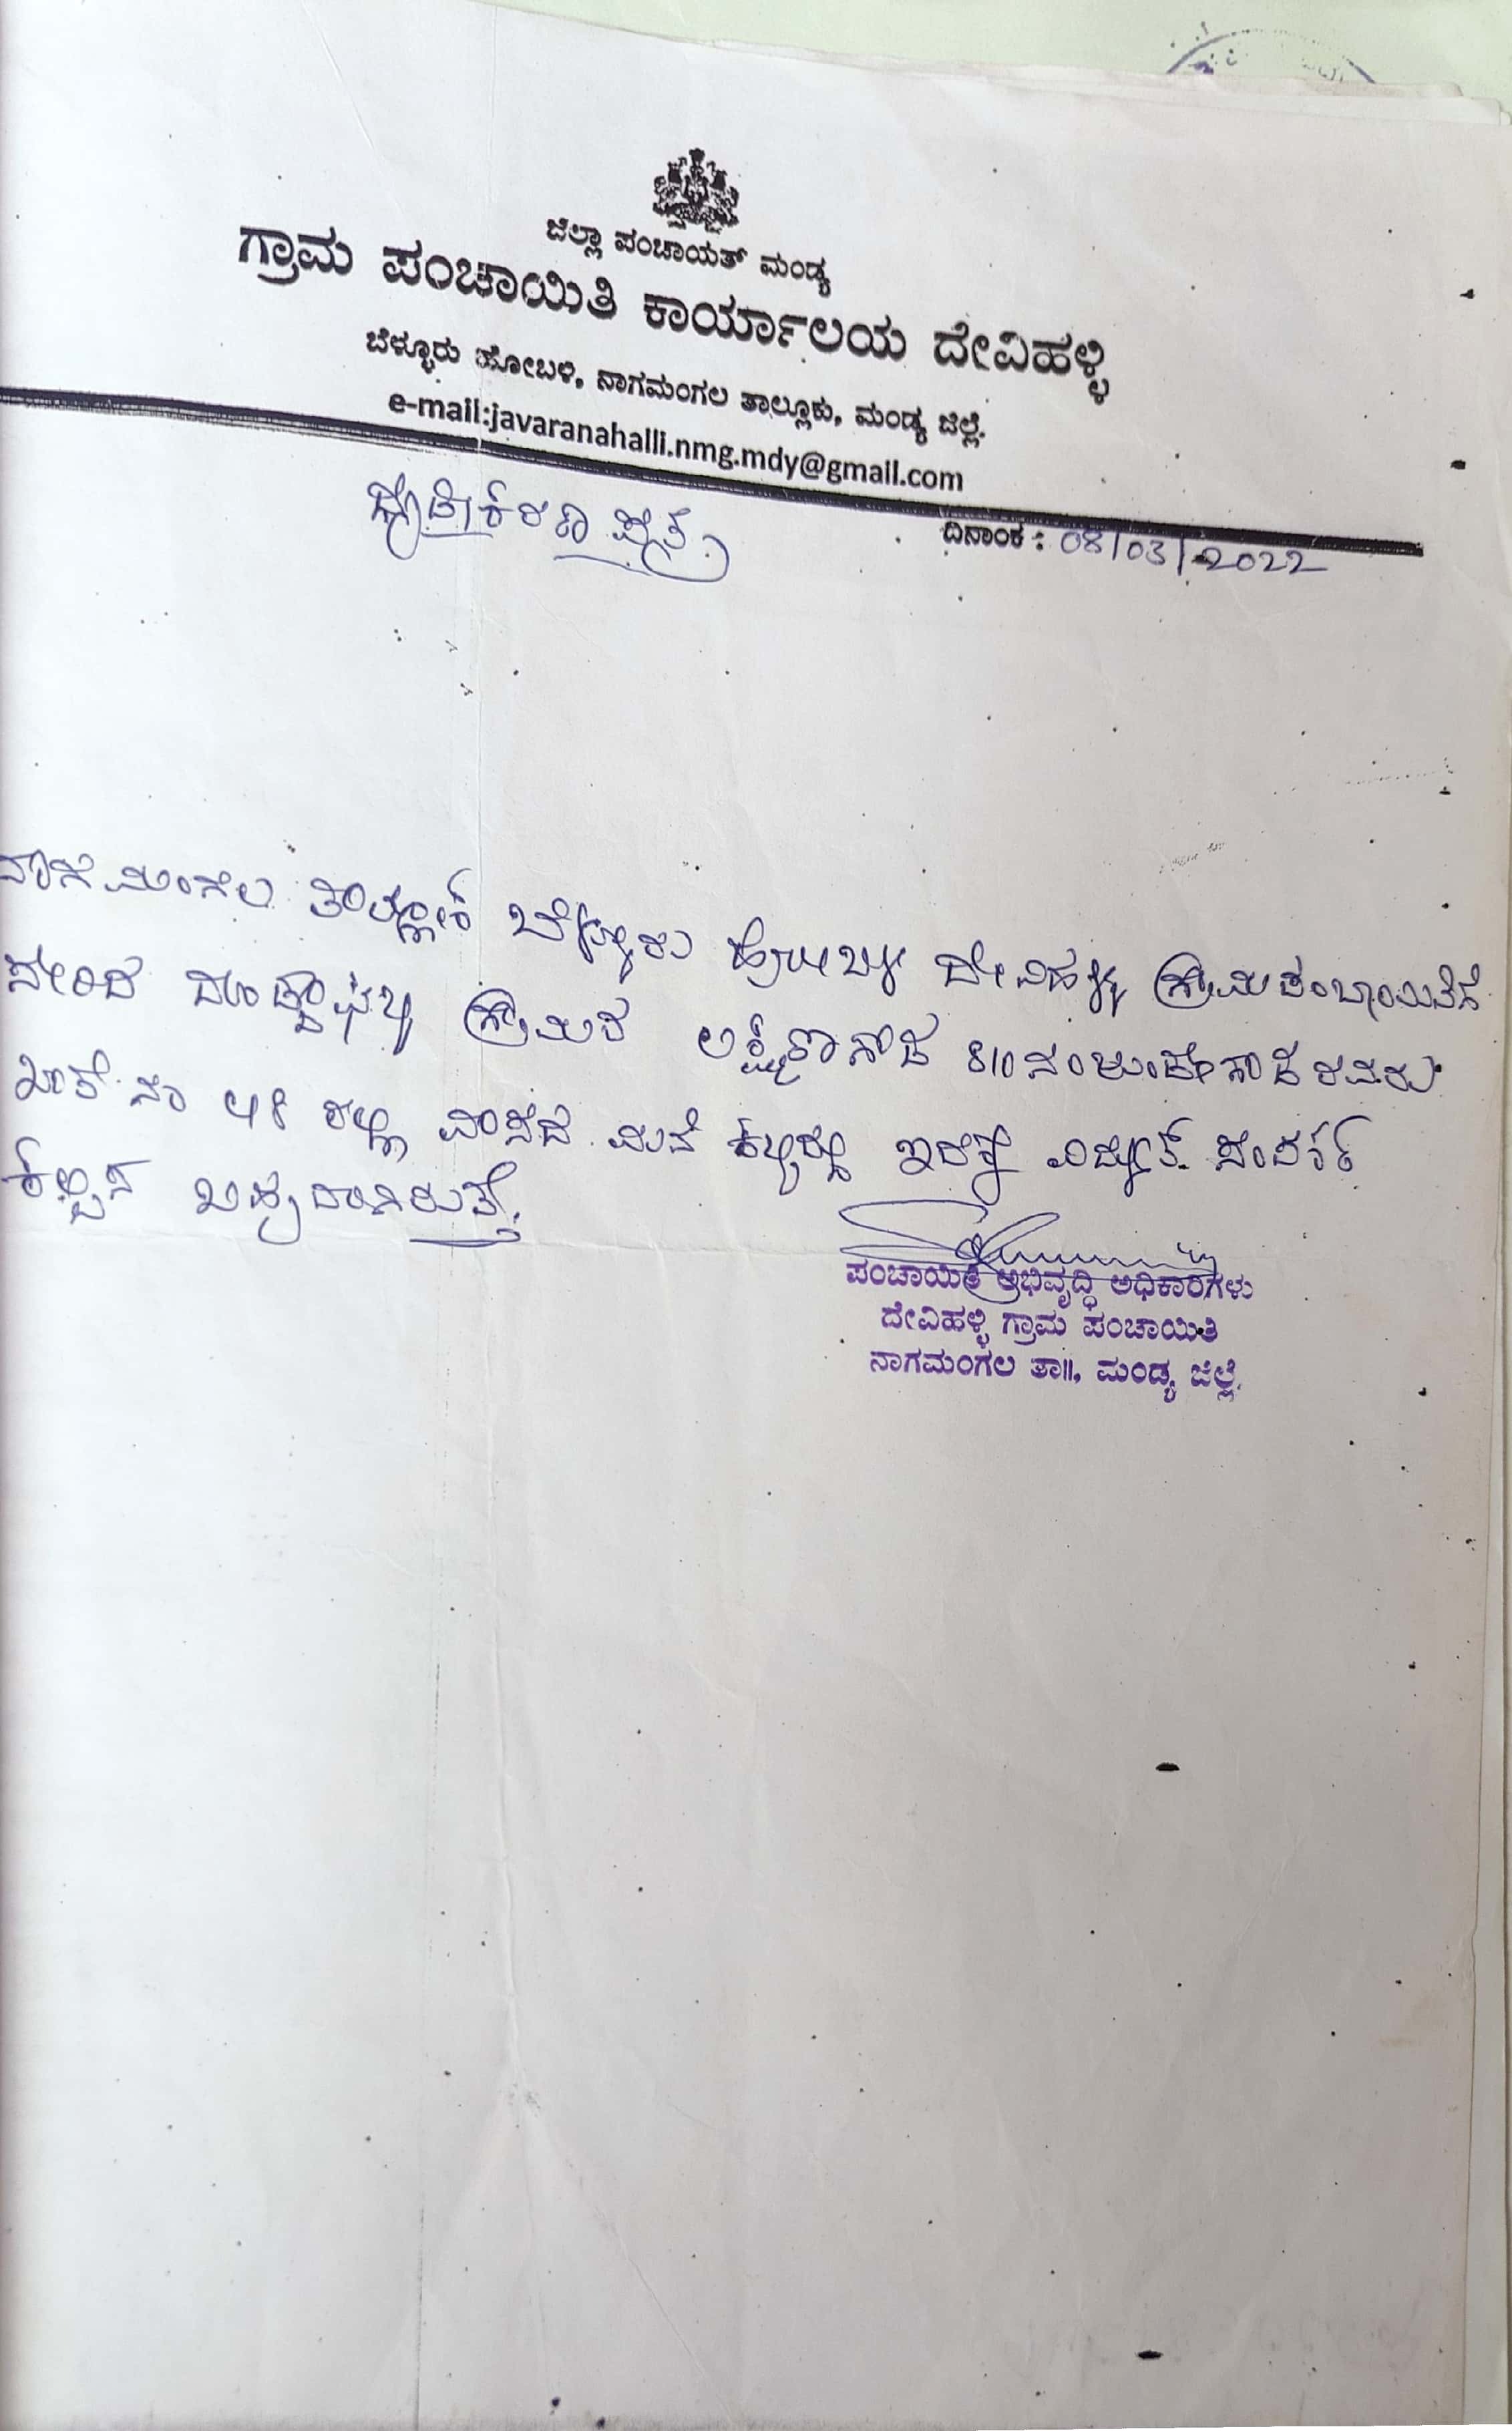 ಜಿಲ್ಲಾ ಪಂಚಾಯತ್ ಮಂಡ್ಯ
ಗ್ರಾಮ ಪಂಚಾಯಿತಿ ಕಾರ್ಯಾಲಯ ದೇವಿಹಳ್ಳಿ
ಬೆಳ್ಳೂರು ಹೋಬಳಿ, ನಾಗಮಂಗಲ ತಾಲ್ಲೂಕು, ಮಂಡ್ಯ ಜಿಲ್ಲೆ.
e-mail:javaranahalli.nmg.mdy@gmail.com
ದೃಢೀಕರಣ ಪತ್ರ
ದಿನಾಂಕ : 08/03/2022
ನಾಗಮಂಗಲ ತಾಲ್ಲೂಕ್ ಬೆಳ್ಳೂರು ಹೋಬಳಿ ದೇವಿಹಳ್ಳಿ ಗ್ರಾಮಪಂಚಾಯಿತಿಗೆ
ಸೇರಿದ ಗ್ರಾಮದ ಲಕ್ಷ್ಮಣಗೌಡ S/O ನಂಜುಂಡೇಗೌಡ ರವರು
ಖಾತೆ ನಂ 48 ರಲ್ಲಿ ವಾಸದ ಮನೆ ಇದಕ್ಕೆ ವಿದ್ಯುತ್ ಸಂಪರ್ಕ
ಪಂಚಾಯಿತಿ ಅಭಿವೃದ್ಧಿ ಅಧಿಕಾರಿಗಳು
ದೇವಿಹಳ್ಳಿ ಗ್ರಾಮ ಪಂಚಾಯಿತಿ
ನಾಗಮಂಗಲ ತಾ||, ಮಂಡ್ಯ ಜಿಲ್ಲೆ.